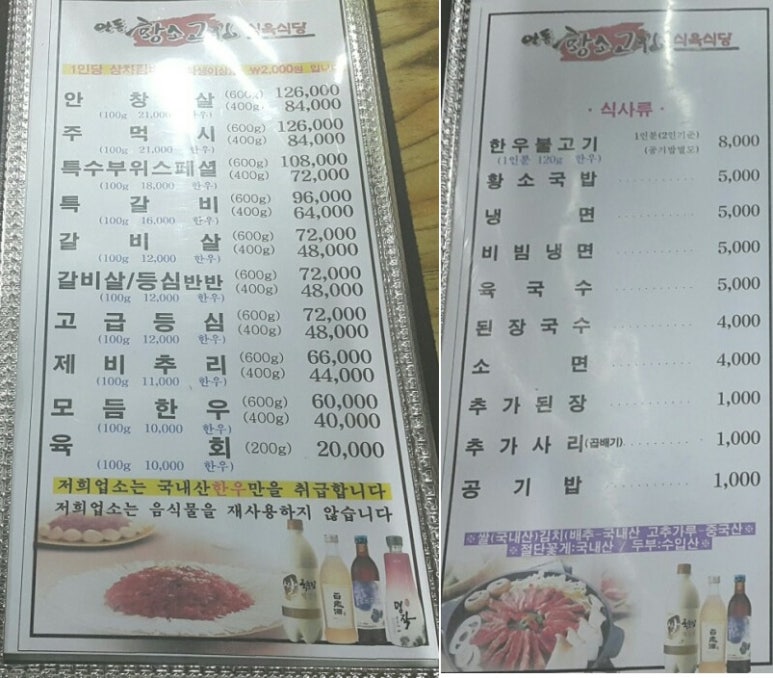 안동 황소고집 식육식당
1인당 상차림비 ₩2,000원 입니다
안창살 (600g) 126,000
(400g) 84,000
(100g 21,000 한우)
주먹시 (600g) 126,000
(400g) 84,000
(100g 21,000 한우)
특수부위스페셜 (600g) 108,000
(400g) 72,000
(100g 18,000 한우)
특갈비 (600g) 96,000
(400g) 64,000
(100g 16,000 한우)
갈비살 (600g) 72,000
(400g) 48,000
(100g 12,000 한우)
갈비살/등심반반 (600g) 72,000
(400g) 48,000
(100g 12,000 한우)
고급등심 (600g) 72,000
(400g) 48,000
(100g 12,000 한우)
제비추리 (600g) 66,000
(400g) 44,000
(100g 11,000 한우)
모듬한우 (600g) 60,000
(400g) 40,000
(100g 10,000 한우)
육회 (200g) 20,000
(100g 10,000 한우)
저희업소는 국내산한우만을 취급합니다
저희업소는 음식물을 재사용하지 않습니다
안동 황소고집 식육식당
· 식사류 ·
한우불고기 1인분(2인기준) 8,000
(1인분 120g 한우) (공기밥별도)
황소국밥 .......... 5,000
냉면 .......... 5,000
비빔냉면 .......... 5,000
육국수 .......... 5,000
된장국수 .......... 4,000
소면 .......... 4,000
추가된장 .......... 1,000
추가사리(곱배기) .......... 1,000
공기밥 .......... 1,000
※쌀(국내산)김치(배추-국내산 고추가루 중국산※
※절단꽃게:국내산 / 두부:수입산※